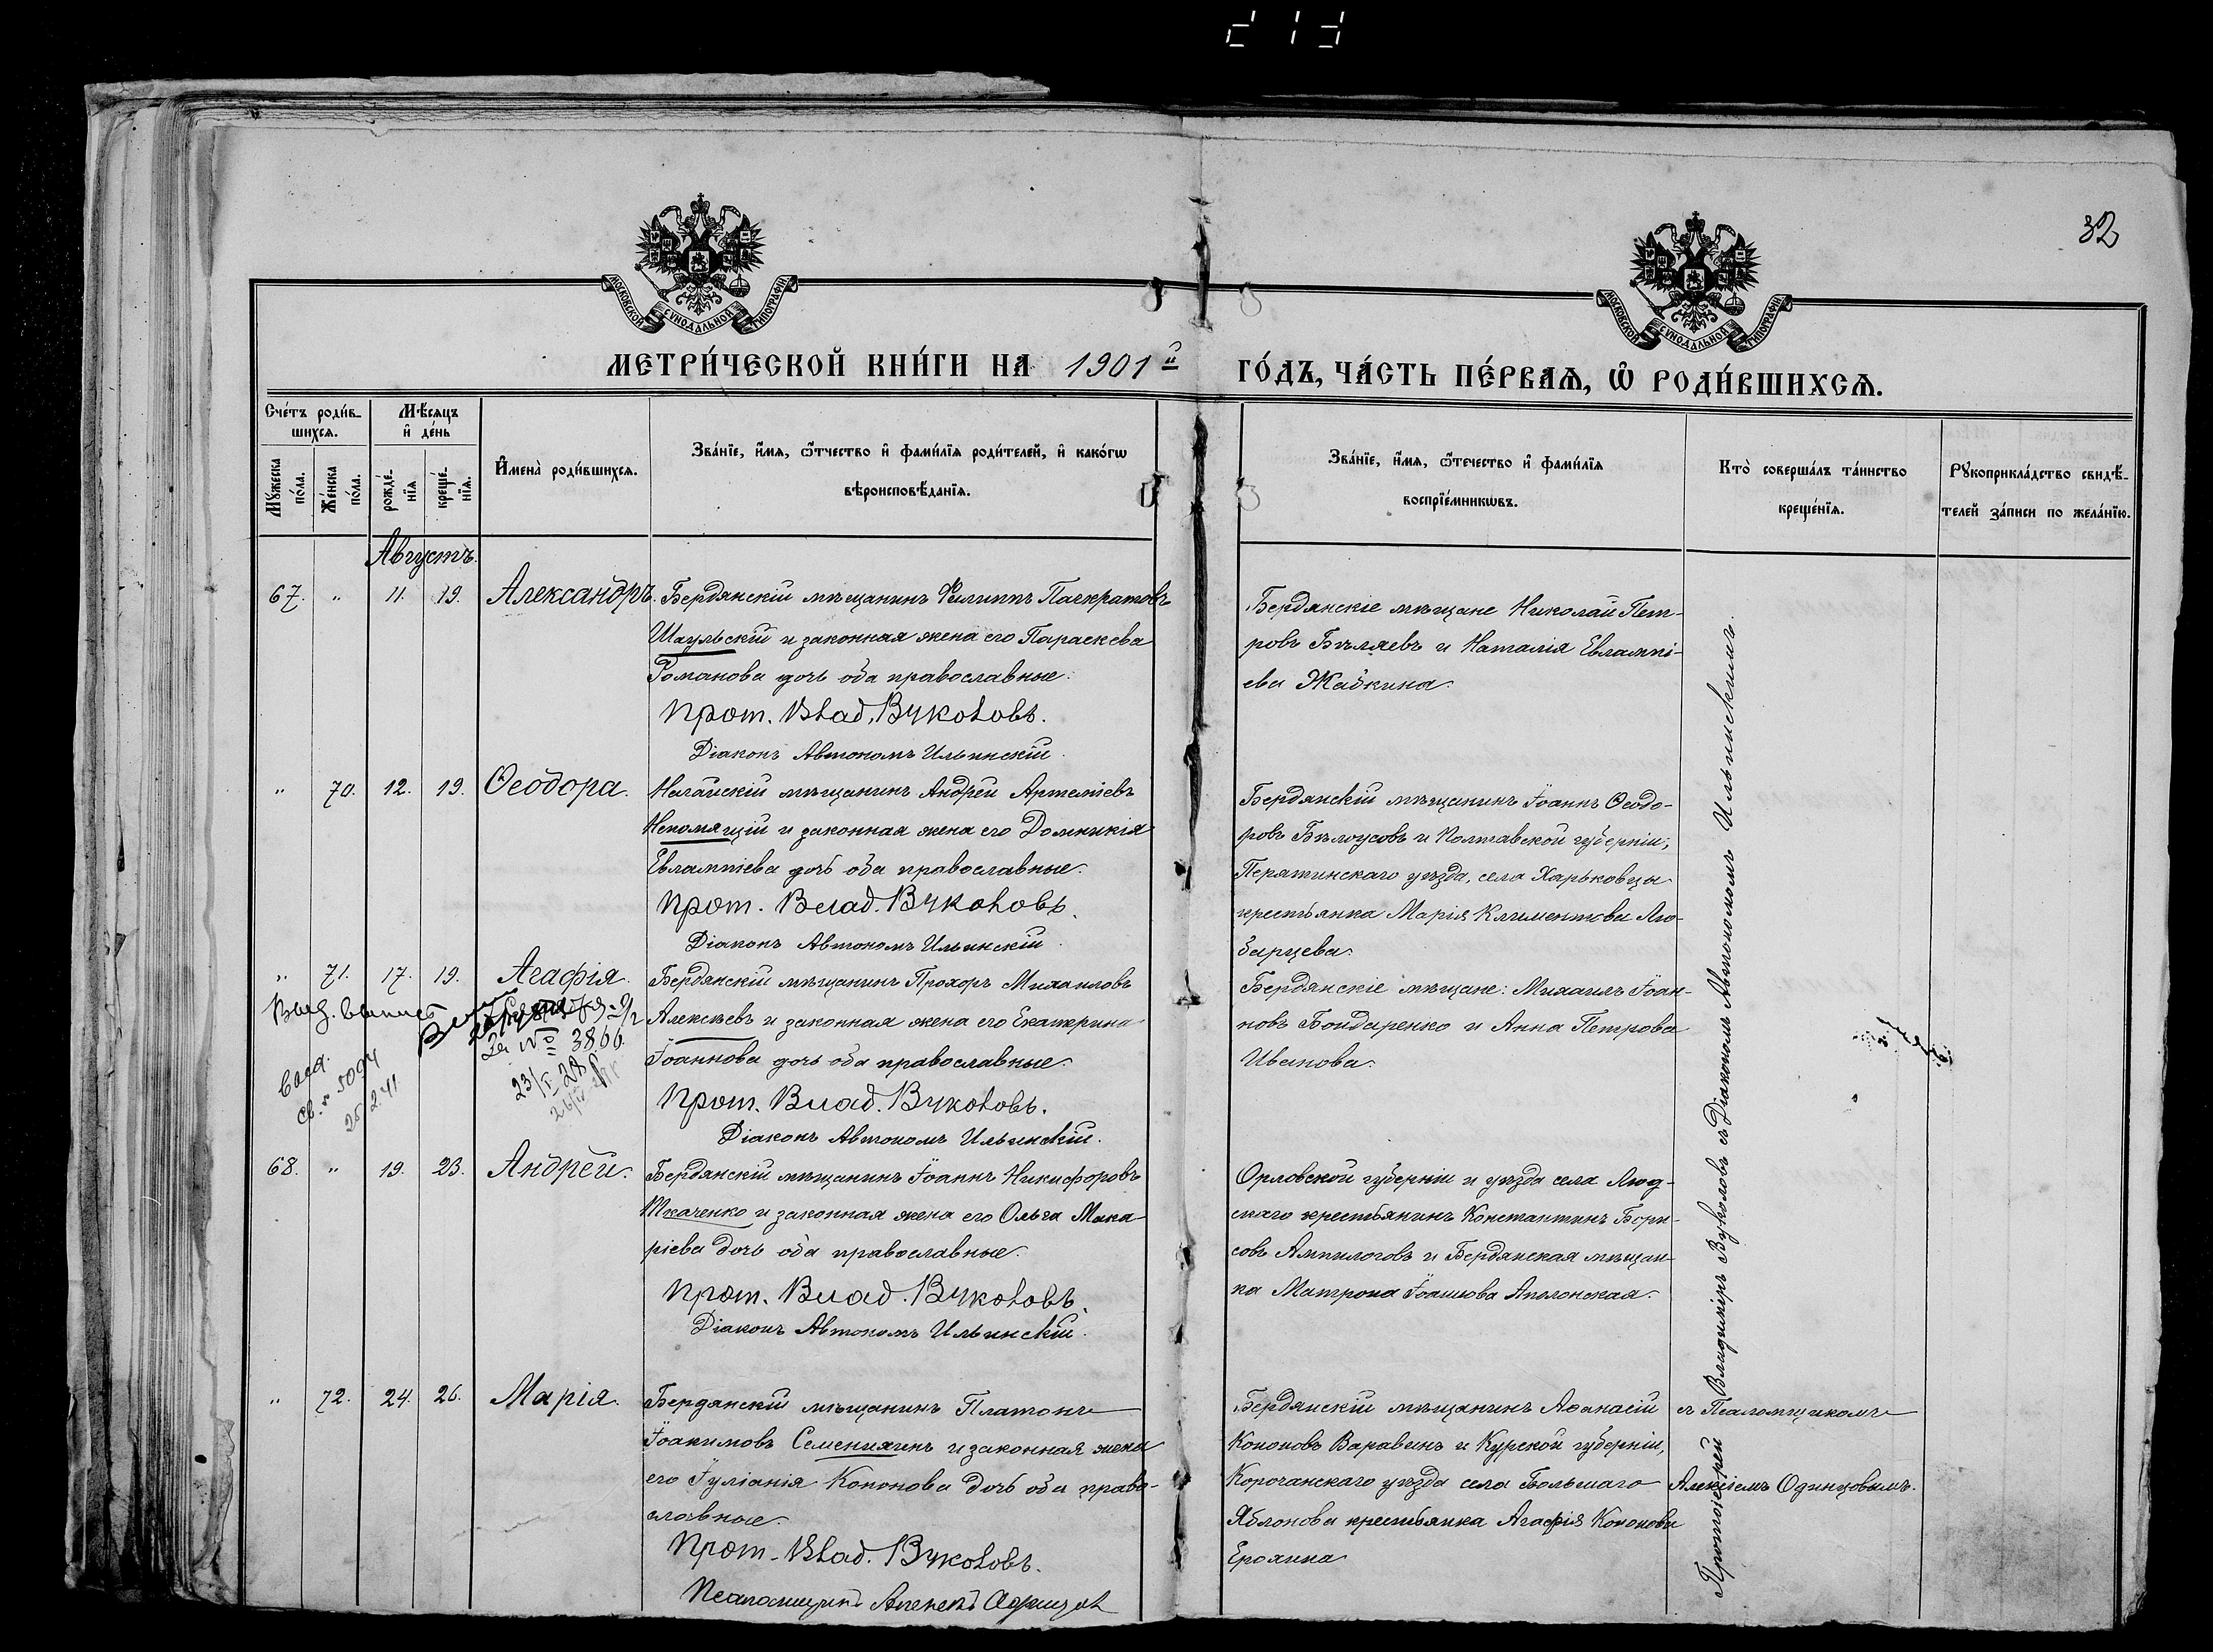 32
МОСКОВСКОЙ СѴНОДАЛЬНОЙ ТИПОГРАФІИ
МОСКОВСКОЙ СѴНОДАЛЬНОЙ ТИПОГРАФІИ
МЕТРИ́ЧЕСКОЙ КНИ́ГИ НА 1901й ГО́ДЪ, ЧА́СТЬ ПЕ́РВАѦ, Ѡ҆ РОДИ́ВШИХСѦ.
Сче́тъ роди́в-
шихсѧ.
Мѣ́сѧцъ
и҆ де́нь
Мꙋ́жеска
по́ла.
Же́нска
по́ла.
рожде́-
нїѧ
креще́-
нїѧ.
И҆мена̀ роди́вшихсѧ.
Зва́нїе, и҆́мѧ, ѻ҆́тчество и҆ фами́лїѧ роди́телей, и҆ како́гѡ
вѣроисповѣ́данїѧ.
Зва́нїе, и҆́мѧ, ѻ҆́течество и҆ фами́лїѧ
воспрїе́мникѡвъ.
Кто̀ соверша́лъ та́инство
креще́нїѧ.
Рꙋкоприкла́дство свидѣ́-
телей за́писи по жела́нїю.
Августъ.
67. " 11. 19. Александръ. Бердянскій мѣщанинъ Филиппъ Панкратовъ
Шаульскій и законная жена его Параскева
Романова дочь оба православные.
Прот. Влад. Вуколовъ.
Діаконъ Автономъ Ильинскій.
Бердянскіе мѣщане Николай Пет-
ровъ Бѣляевъ и Наталія Евлампі-
ева Жабкина.
" 70. 12. 19. Ѳеодора. Ногайскій мѣщанинъ Андрей Артеміевъ
Непомящій и законная жена его Домникія
Евлампіева дочь оба православные.
Прот. Влад. Вуколовъ.
Діаконъ Автономъ Ильинскій.
Бердянскій мѣщанинъ Іоаннъ Ѳеодо-
ровъ Бѣлоусовъ и Полтавской губерніи,
Пирятинскаго уѣзда, села Харьковцы
крестьянка Марія Климентова Лю-
барцева.
" 71. 17. 19. Агафія. Бердянскій мѣщанинъ Прохоръ Михаиловъ
Алексѣевъ и законная жена его Екатерина
Іоаннова дочь оба православные.
Прот. Влад. Вуколовъ.
Діаконъ Автономъ Ильинскій.
Выд.
за № 3866
5094
25 2.41
Бердянскіе мѣщане: Михаилъ Іоан-
новъ Бондаренко и Анна Петрова
Иванова.
68. " 19. 23. Андрей. Бердянскій мѣщанинъ Іоаннъ Никифоровъ
Ткаченко и законная жена его Ольга Мака-
ріева дочь оба православные.
Прот. Влад. Вуколовъ.
Діаконъ Автономъ Ильинскій.
Орловской губерніи и уѣзда села Люд-
скаго крестьянинъ Константинъ Бори-
совъ Ампилоговъ и Бердянская мѣщан-
ка Матрона Іоаннова Аполонская.
" 72. 24. 26. Марія. Бердянскій мѣщанинъ Платонъ
Іоакимовъ Семенихинъ и законная жена
его Іуліанія Кононова дочь оба право-
славные.
Прот. Влад. Вуколовъ.
Псаломщикъ Алексѣй Одинцовъ
Бердянскій мѣщанинъ Аѳанасій
Кононовъ Варавинъ и Курской губерніи,
Корочанскаго уѣзда села Большаго
Яблонова крестьянка Агафія Кононова
Ерохина
Протоіерей Владиміръ Вуколовъ съ Діакономъ Автономомъ Ильинскимъ.
съ Псаломщикомъ
Алексіемъ Одинцовымъ.